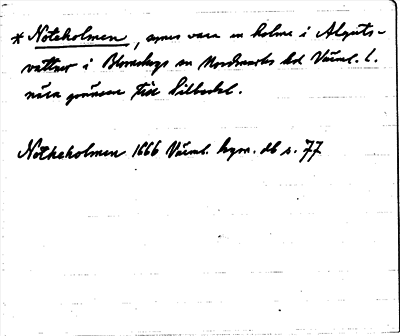 * Noteholmen, synes vara en holme i Alguts-
vattnet i Blomskogs sn Nordmarks hd Värml. l.
nära gränsen till Silbodal.
Notheholmen 1666 Värml. hysn. db s. 77